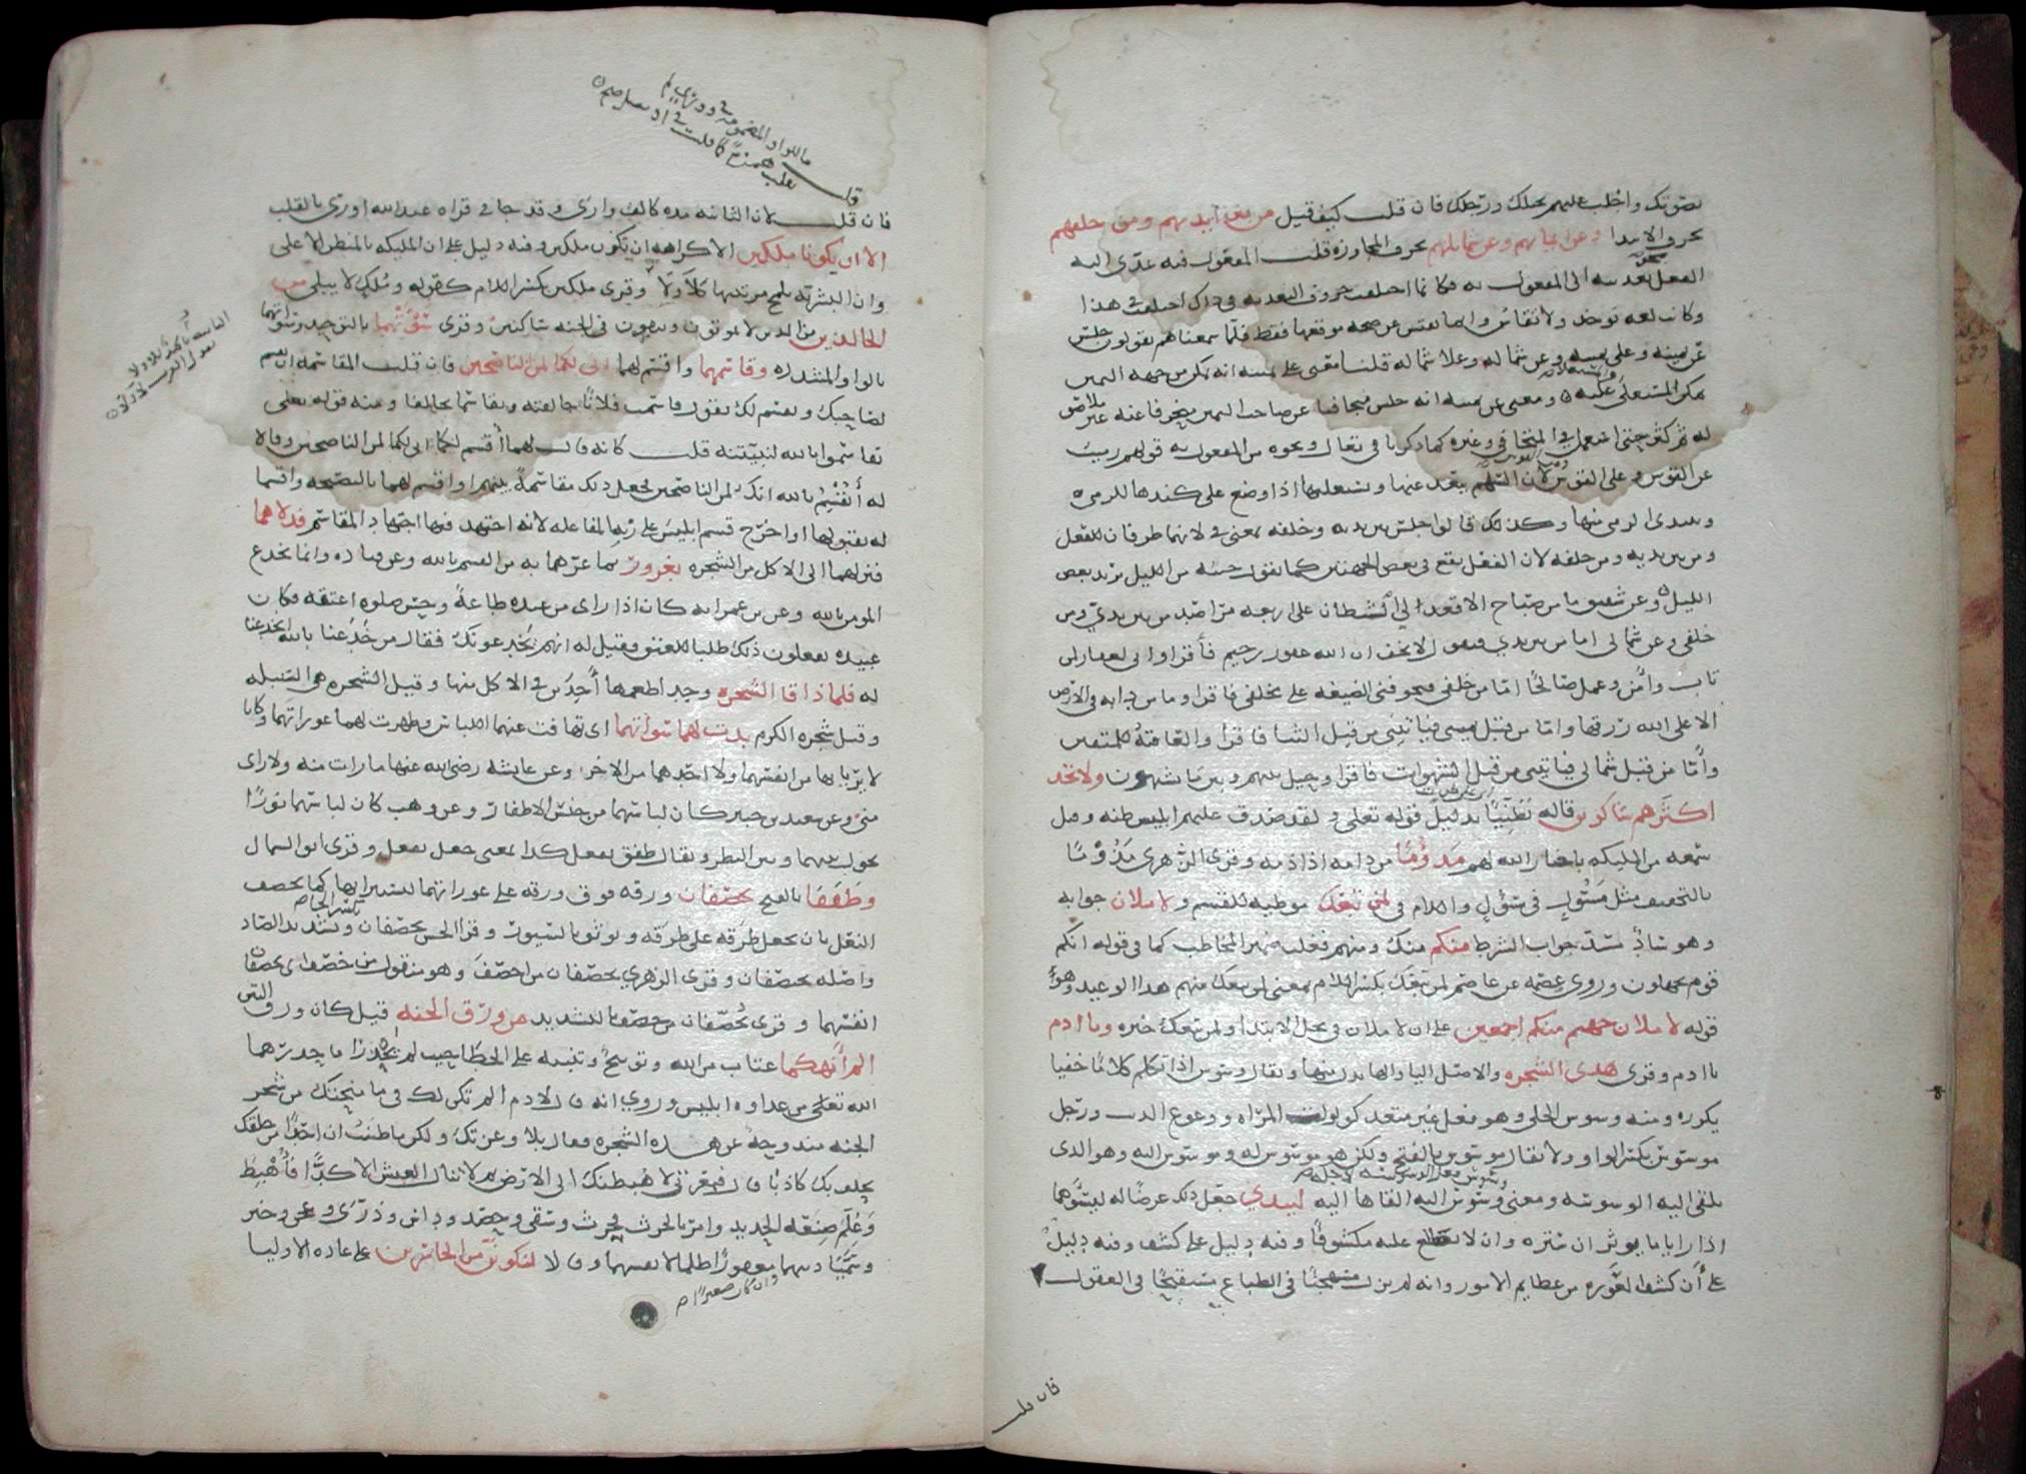 بصوتك واجلب عليهم بخيلك ورجلك فان قلت كيف قيل من بين ايديهم ومن خلفهم
بحرف الابتدا وعن ايمانهم وعن شمايلهم بحرف المجاوزة قلت المفعول فيه عدى اليه
الفعل نحو تعديته الى المفعول به فكما اختلفت حروف التعدية في ذاك اختلفت في هذا
وكانت لغة توخذ ولا تقاس وانما يفتش عن صحة موقعها فقط فلما سمعناهم يقولون جلس
عن يمينه وعلى يمينه وعن شماله وعلى شماله قلنا معنى على يمينه انه تمكن من جهة اليمين
تمكن المستعلي من المستعلى عليه ومعنى عن يمينه انه جلس متجافيا عن صاحب اليمين منحرفا عنه غير ملاصق
له ثم كثر حتى استعمل في المتجافي وغيره كما ذكرنا في تعال ونحوه من المفعول به قولهم رميت
عن القوس وعلى القوس ومن القوس لان السهم يبعد عنها ويستعليها اذا وضع على كبدها للرمي
ويبتدى الرمي منها وكذلك قالوا جلس بين يديه وخلفه بمعنى في لانهما ظرفان للفعل
ومن بين يديه ومن خلفه لان الفعل يقع في بعض الجهتين كما تقول جيته من الليل تريد بعض
الليل وعن شقيق ما من صباح الا قعد لي الشيطان على اربعة مراصد من بين يدي ومن
خلفي وعن شمالي اما من بين يدي فيقول لا تخف ان الله غفور رحيم فاقرا واني لغفار لمن
تاب وامن وعمل صالحا اما من خلفي فيخوفني الضيعة على مخلفي فاقرا وما من دابة في الارض
الا على الله رزقها واما من قبل يميني فياتيني من قبل الثنا فاقرا والعاقبة للمتقين
واما من قبل شمالي فياتيني من قبل الشهوات فاقرا وحيل بينهم وبين ما يشتهون ولا تجد
اكثرهم شاكرين قاله تظنيا بدليل قوله تعالى ولقد صدق عليهم ابليس ظنه وقيل
سمعه من المليكة باخبار الله لهم مذؤما من ذامه اذا ذمه وقرى الزهري مذوما
بالتخفيف مثل مسول في مسؤل واللام في لمن تبعك موطية للقسم ولاملان جوابه
وهو ساد مسد جواب الشرط منكم منك ومنهم فغلب ضمير المخاطب كما في قوله انكم
قوم تجهلون وروى عصمة عن عاصم لمن تبعك بكسر اللام بمعنى لمن تبعك منهم هذا الوعيد وهو
قوله لاملان جهنم منكم اجمعين على ان لاملان في محل الابتدا ولمن تبعك خبره ويا ادم
يا ادم وقرى هذى الشجرة والاصل اليا والها بدل منها ويقال وسوس اذا تكلم كلاما خفيا
يكرره ومنه وسوس الحلي وهو فعل غير متعد كولولت المراة ووعوع الذيب ورجل
موسوس بكسر الواو ولا يقال موسوس بالفتح ولكن هو موسوس له وموسوس اليه وهو الذي
يلقى اليه الوسوسة ومعنى وسوس له فعل الوسوسة لاجله ووسوس اليه القاها اليه ليبدي جعل ذلك غرضا له ليسوهما
اذا رايا ما يوثران ستره وان لا يطلع عليه مكشوفا وفيه دليل على كشف وفيه دليل
على ان كشف العورة من عظايم الامور وانه لم يزل مستهجنا في الطباع مستقبحا في العقول
فان قلت
فان قلت
لان الثانية مدة كالف وارى وقد جا في قراة عبد الله اورى بالقلب
الا ان تكونا ملكين الا كراهة ان تكونا ملكين وفيه دليل على ان المليكة بالمنظر الاعلى
وان البشرية تلمح مرتبتها كلا ولا وقرى ملكين بكسر اللام كقوله وملك لا يبلى من
الخالدين من الذين لا يموتون ويبقون في الجنة ساكنين وقرى من سوتهما بالتوحيد وسواتهما
بالواو المشددة وقاسمهما واقسم لهما اني لكما لمن الناصحين فان قلت المقاسمة ان تقسم
لصاحبك ويقسم لك تقول قاسمت فلانا حالفته وتقاسما تحالفا ومنه قوله تعالى
تقاسموا بالله لنبيتنه قلت كانه قال لهما اقسم لكما اني لكما لمن الناصحين وقالا
له اتقسم بالله انك لمن الناصحين فجعل ذلك مقاسمة بينهم او اقسم لهما بالنصيحة واقسما
له بقبولها او اخرج قسم ابليس على زنة المفاعلة لانه اجتهد فيها اجتهاد المقاسم فدلاهما
فنزلهما الى الاكل من الشجرة بغرور بما غرهما به من القسم بالله وعن قتادة وانما يخدع
المومن بالله وعن ابن عمر انه كان اذا راى من عبده طاعة وحسن صلوة اعتقه فكان
عبيده يفعلون ذلك طلبا للعتق فقيل له انهم يخدعونك فقال من خدعنا بالله انخدعنا
له فلما ذاقا الشجرة وجدا طعمها آخذين في الاكل منها وقيل الشجرة هي السنبلة
وقيل شجرة الكرم بدت لهما سواتهما اى تهافت عنهما اللباس وظهرت لهما عوراتهما وكانا
لا يريانها من انفسهما ولا احدهما من الاخر وعن عايشة رضي الله عنها ما رايت منه ولا راى
مني وعن سعيد بن جبير كان لباسهما من جنس الاظفار وعن وهب كان لباسهما نورا
يحول بينهما وبين النظر ويقال طفق يفعل كذا بمعنى جعل يفعل وقرى ابو السمال
وطفقا بالفتح يخصفان ورقة فوق ورقة على عوراتهما ليستترا بها كما يخصف
النعل بان يجعل طرقة على طرقة وتوثق بالسيور وقرا الحسن يخصفان بكسر الخا وتشديد الصاد
واصله يختصفان وقرى الزهري يخصفان من اخصف وهو منقول من خصف اى يخصفان
انفسهما وقرى يخصفان من خصف بالتشديد من ورق الجنة قيل كان ورق التين
الم انهكما عتاب من الله وتوبيخ وتنبيه على الخطا حيث لم يحذرا ما حذرهما
الله تعالى من عداوة ابليس وروي انه قال لادم الم تكن لك في ما منحتك من شجر
الجنة مندوحة عن هذه الشجرة فقال بلا وعزتك ولكن ما ظننت ان احدا من خلقك
يحلف بك كاذبا قال فبعزتي لاهبطنك الى الارض ثم لا تنال العيش الا كدا فاهبط
وعلم صنعة الحديد وامر بالحرث فحرث وسقى وحصد وداس وذرى وعجن وخبز
وسميا ذنبهما وان كان صغيرا مغفورا ظلما لانفسهما وقالا لنكونن من الخاسرين على عادة الاوليا